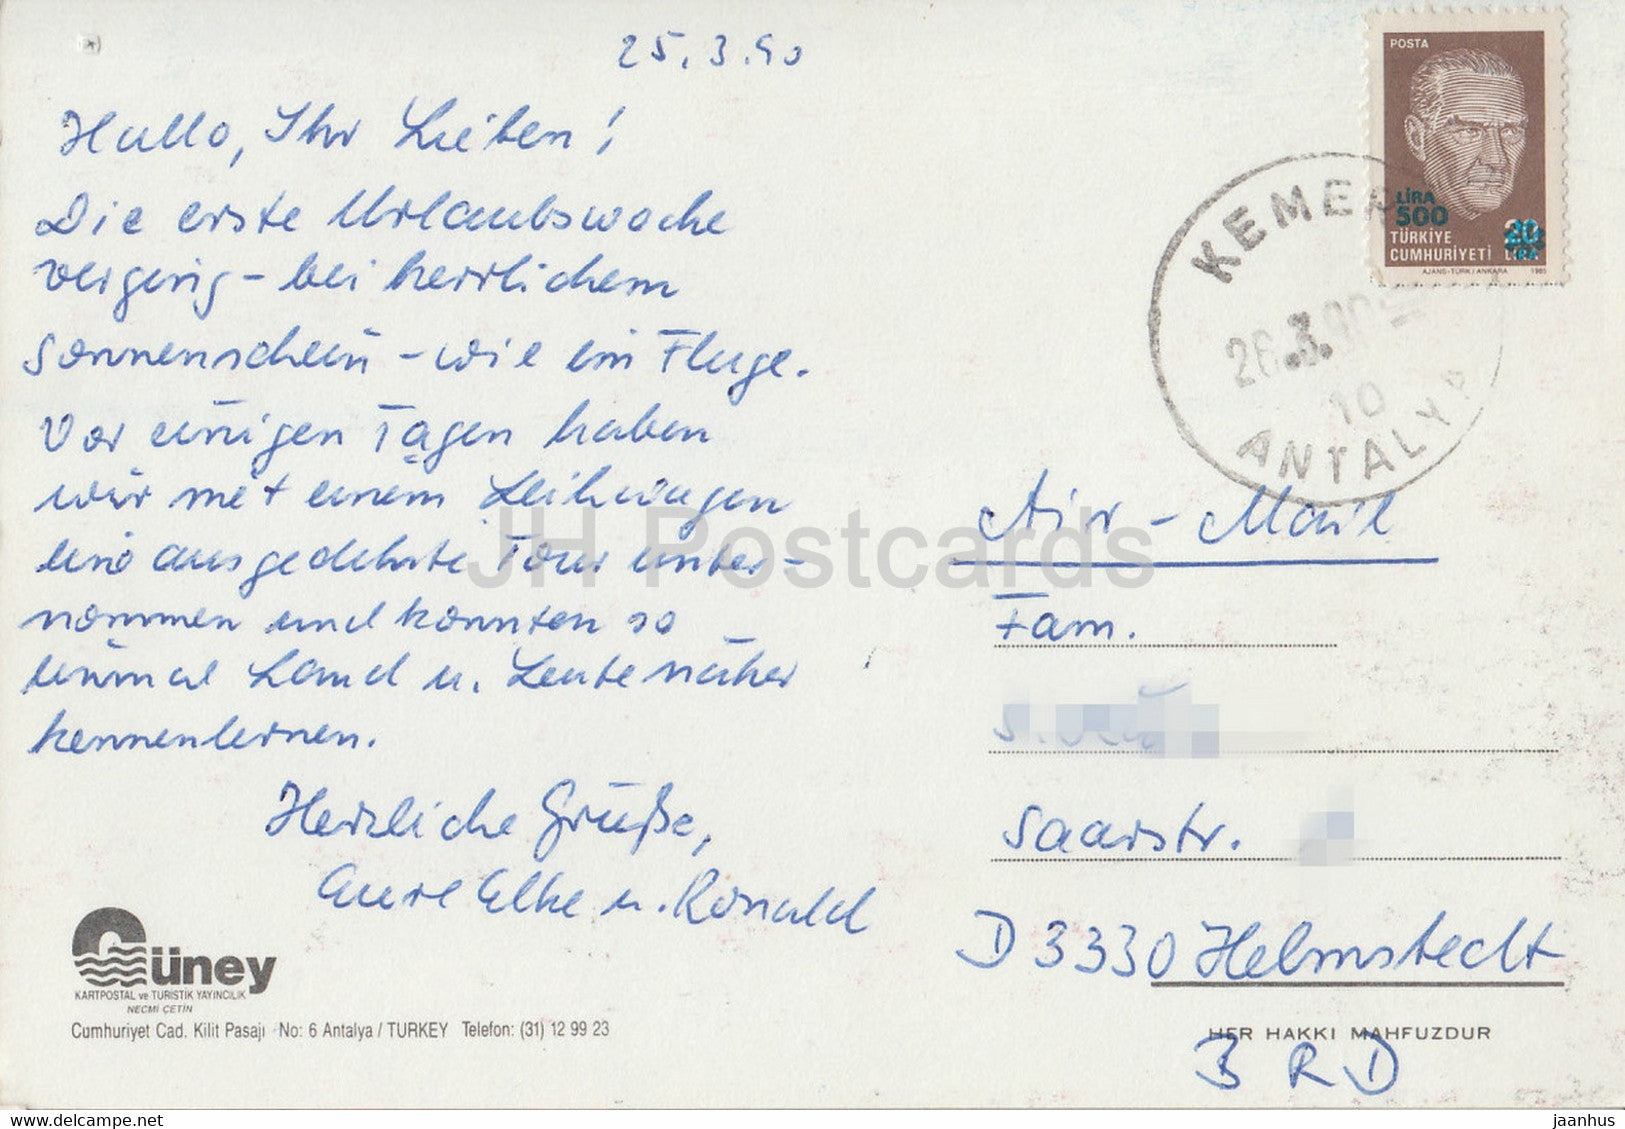 25.3.90
Hallo, Ihr Lieben!
Die erste Urlaubswoche
verging – bei herrlichem
Sonnenschein – wie im Fluge.
Vor einigen Tagen haben
wir mit einem Leihwagen
eine ausgedehnte Tour unter-
nommen und konnten so
einmal Land u. Leute näher
kennenlernen.
Herzliche Grüße,
Eure Elke u. Ronald
Güney
KARTPOSTAL ve TURİSTİK YAYINCILIK
NECMİ ÇETİN
Cumhuriyet Cad. Kilit Pasajı No: 6 Antalya / TURKEY Telefon: (31) 12 99 23
POSTA
LİRA
500
20
LİRA
TÜRKİYE
CUMHURİYETİ
AJANS-TÜRK / ANKARA 1985
KEMER
26.3.90
10
ANTALYA
Air-Mail
Fam.
Saarstr.
D 3330 Helmstedt
HER HAKKI MAHFUZDUR
BRD
JH Postcards
hippostcard.com
jaanhus